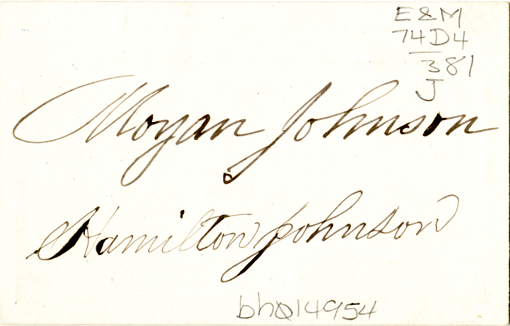 E&M
74D4
381
J
Moyan Johnson
Hamilton Johnson
bh014954